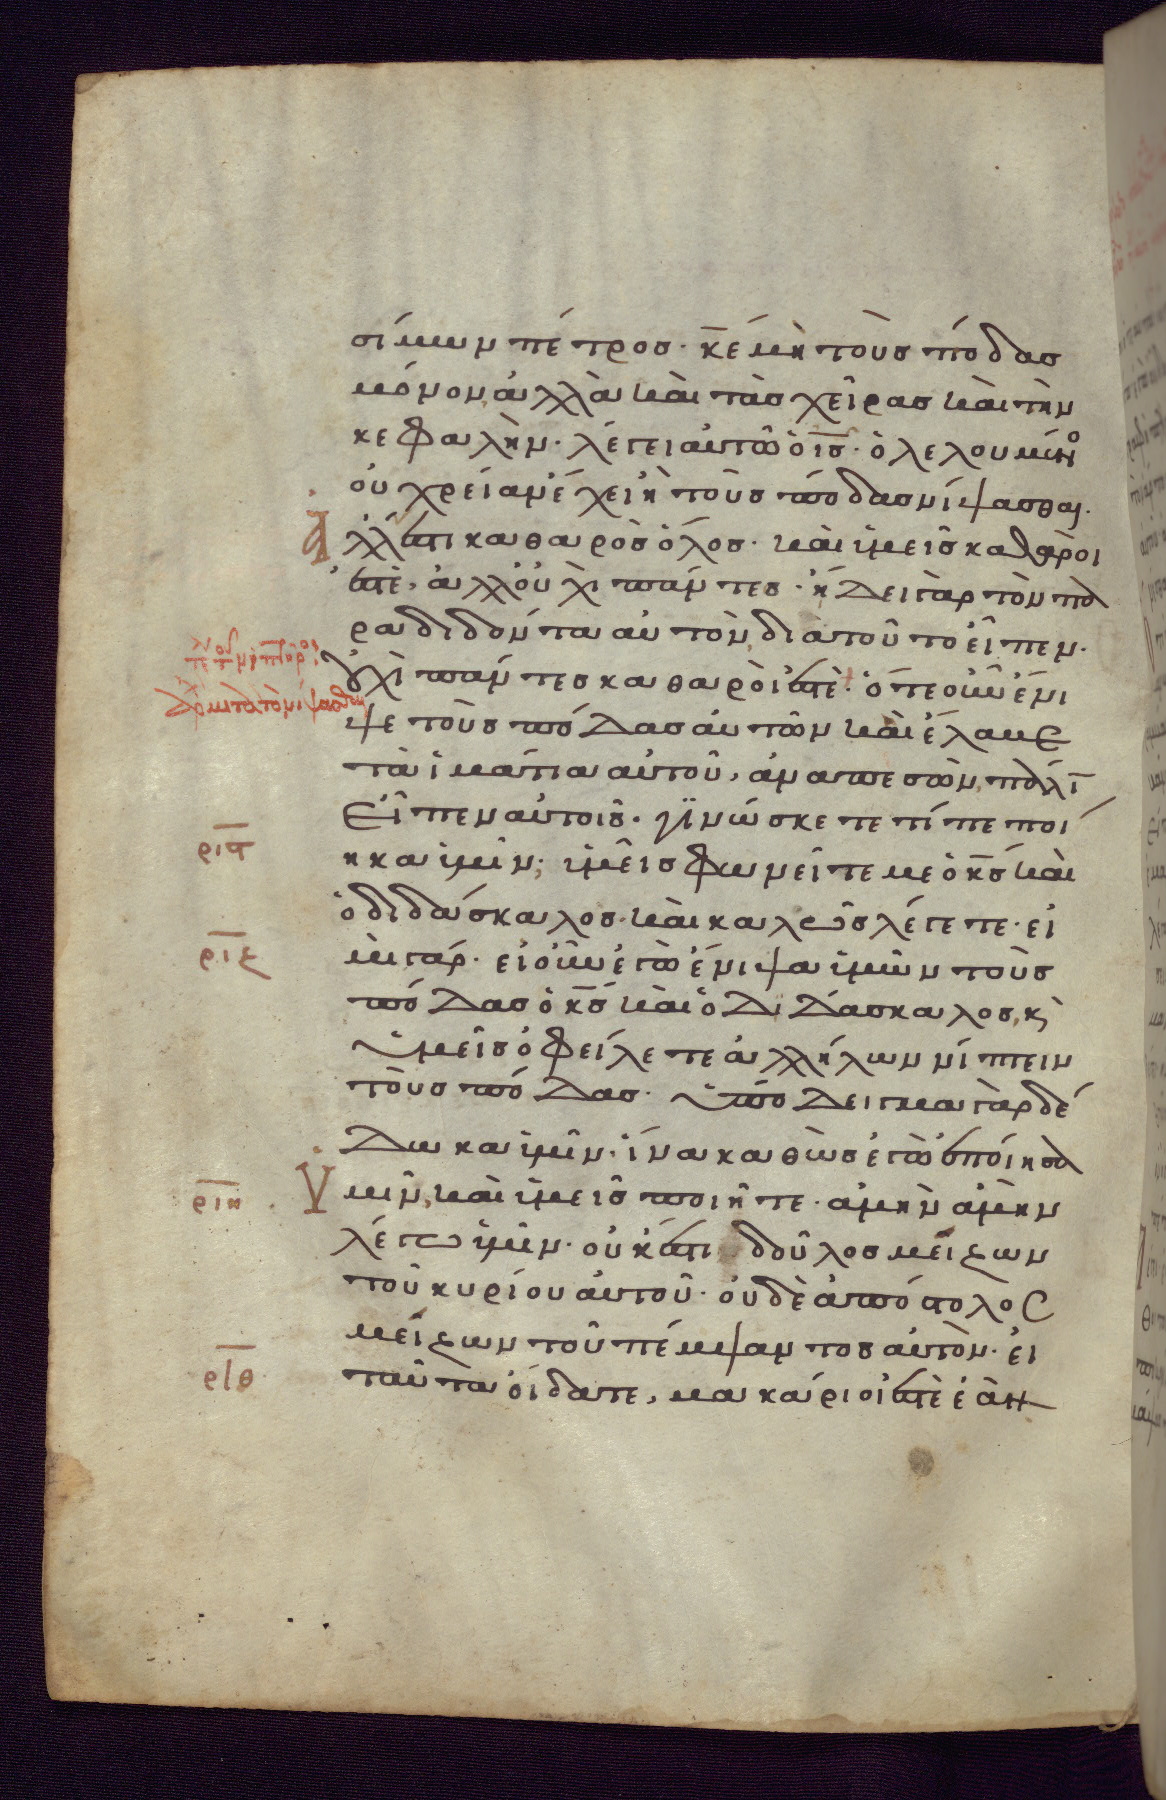 σίμων πέτρος· κ̅ε μὴ τοὺς πόδας
μόνον, ἀλλὰ καὶ τὰς χεῖρας καὶ τὴν
κεφαλήν· λέγει αὐτῶ ὁ ι̅ς· ὁ λελουμένο
οὐ χρείαν ἔχει ἢ τοὺς πόδας νίψασθαι·
ἀλλ' ἔστι καθαρὸς ὅλος· καὶ ὑμεῖς καθαροί
ἐστὲ, ἀλλ' οὐχὶ πάντες· ἤδει γὰρ τὸν πα
ραδιδόντα αὐτὸν, διὰ τοῦτο εἶπεν·
οὐχὶ πάντες καθαροί ἐστὲ· ὅτε οὖν ἔνι
ψε τοὺς πόδας αὐτῶν καὶ ἔλαβε
τὰ ἱμάτια αὐτοῦ, ἀναπεσὼν, πάλι̅
εἶπεν αὐτοῖς· γινώσκετε τί πεποί
ηκα ὑμῖν; ὑμεῖς φωνεῖτέ με ὁ κ̅ς καὶ
ρ̅ι̅ϛ̅
ὁ διδάσκαλος· καὶ καλῶς λέγετε· εἰ
μὶ γάρ· εἰ οὖν ἐγὼ ἔνιψα ὑμῶν τοὺς
ρ̅ι̅ζ̅
πόδας ὁ κ̅ς καὶ ὁ διδάσκαλος, κὶ
ὑμεῖς ὀφείλετε ἀλλήλων νίπτειν
τοὺς πόδας· ὑπόδειγμα γὰρ δέ
δωκα ὑμῖν· ἵνα καθὼς ἐγὼ ἐποίησα
ὑμῖν, καὶ ὑμεῖς ποιῆτε· ἀμὴν ἀμὴν
ρ̅ι̅η̅
λέγω ὑμῖν· οὐκ ἔστι δοῦλος μείζων
τοῦ κυρίου αὐτοῦ· οὐδὲ ἀπόστολος
μείζων τοῦ πέμψαντος αὐτόν· εἰ
ρ̅ι̅θ̅
ταῦτα οἴδατε, μακάριοί ἐστὲ ἐὰν